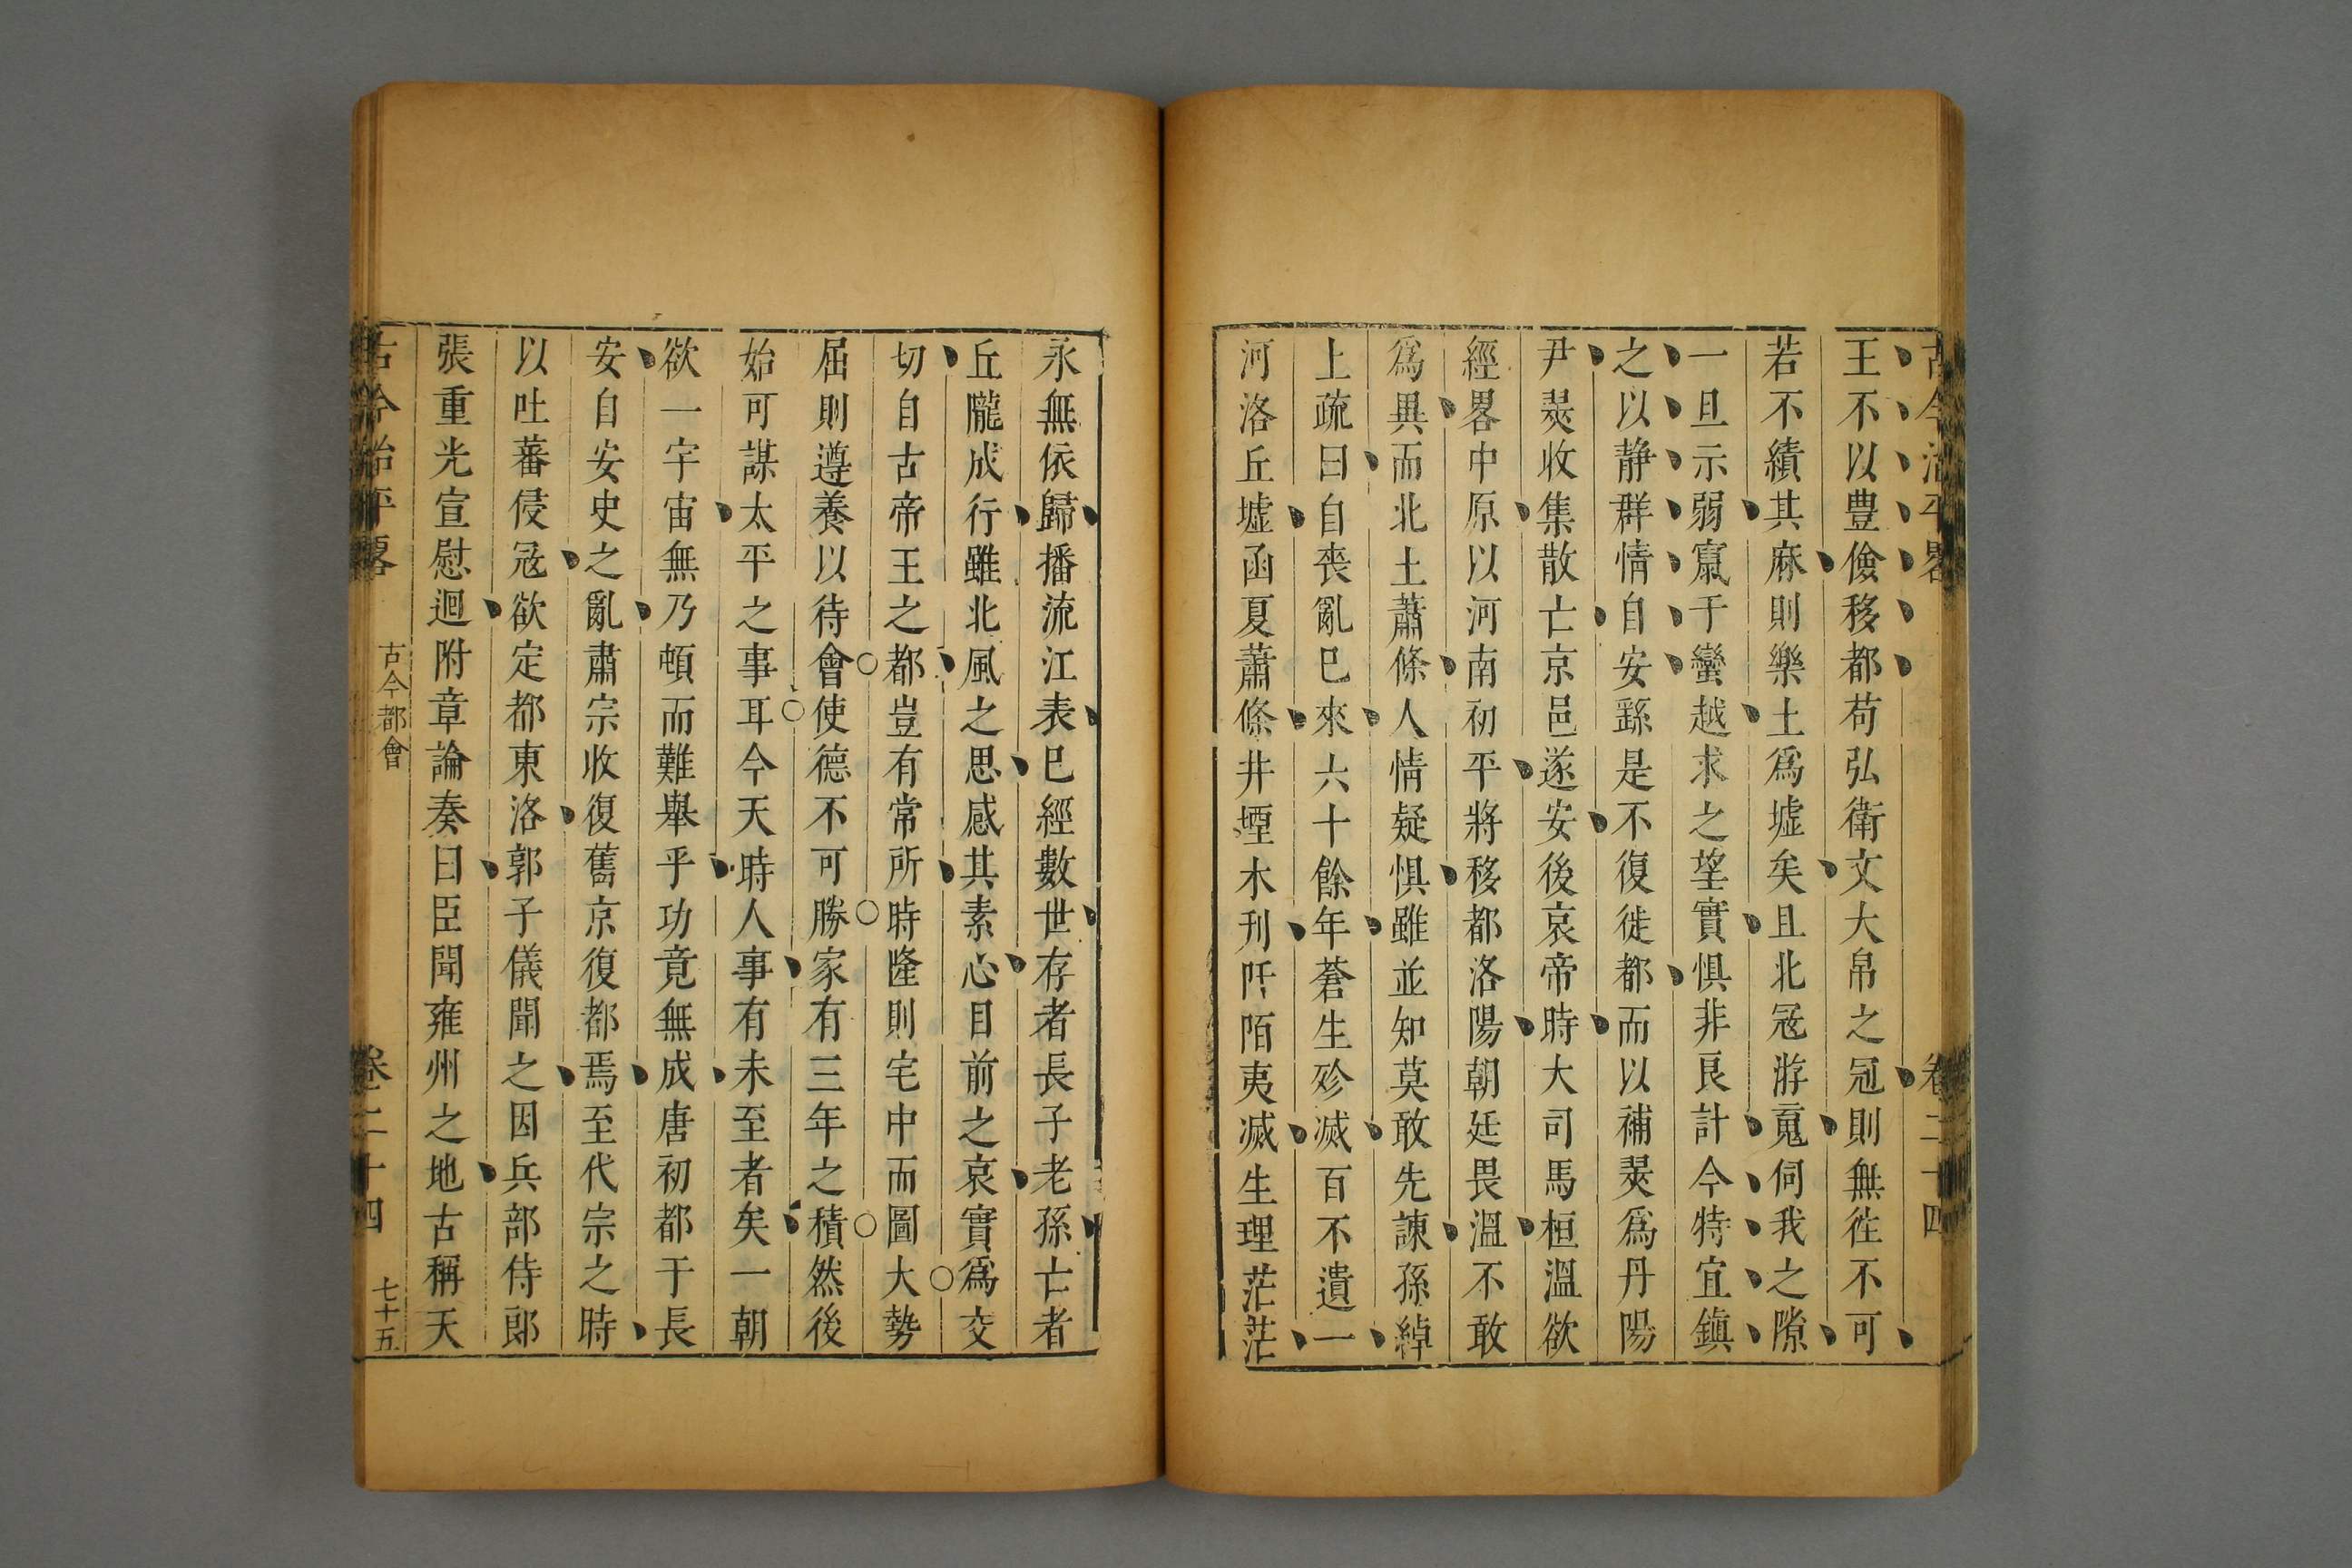 古今治平畧
卷二十四
王不以豊儉移都苟弘衛文大帛之冠則無徃不可
若不績其麻則樂土爲墟矣且北冦游䰟伺我之隙
一旦示弱竄于蠻越求之望實惧非良計今特宜鎮
之以静群情自安繇是不復徙都而以補翜爲丹陽
尹翜收集散亡京邑遂安後哀帝時大司馬桓溫欲
經畧中原以河南初平將移都洛陽朝廷畏溫不敢
爲異而北土蕭條人情疑惧雖並知莫敢先諫孫綽
上疏曰自喪亂已來六十餘年蒼生殄滅百不遺一
河洛丘墟函夏蕭條井堙木刋阡陌夷滅生理茫茫
永無依歸播流江表已經數世存者長子老孫亡者
丘隴成行雖北風之思感其素心目前之哀實爲交
切自古帝王之都豈有常所時隆則宅中而圖大勢
屈則遵養以待會使德不可勝家有三年之積然後
始可謀太平之事耳今天時人事有未至者矣一朝
欲一宇宙無乃頓而難舉乎功竟無成唐初都于長
安自安史之亂肅宗收復舊京復都焉至代宗之時
以吐蕃侵冦欲定都東洛郭子儀聞之因兵部侍郎
張重光宣慰迴附章論奏曰臣聞雍州之地古稱天
古今治平畧
古今都會
卷二十四
七十五